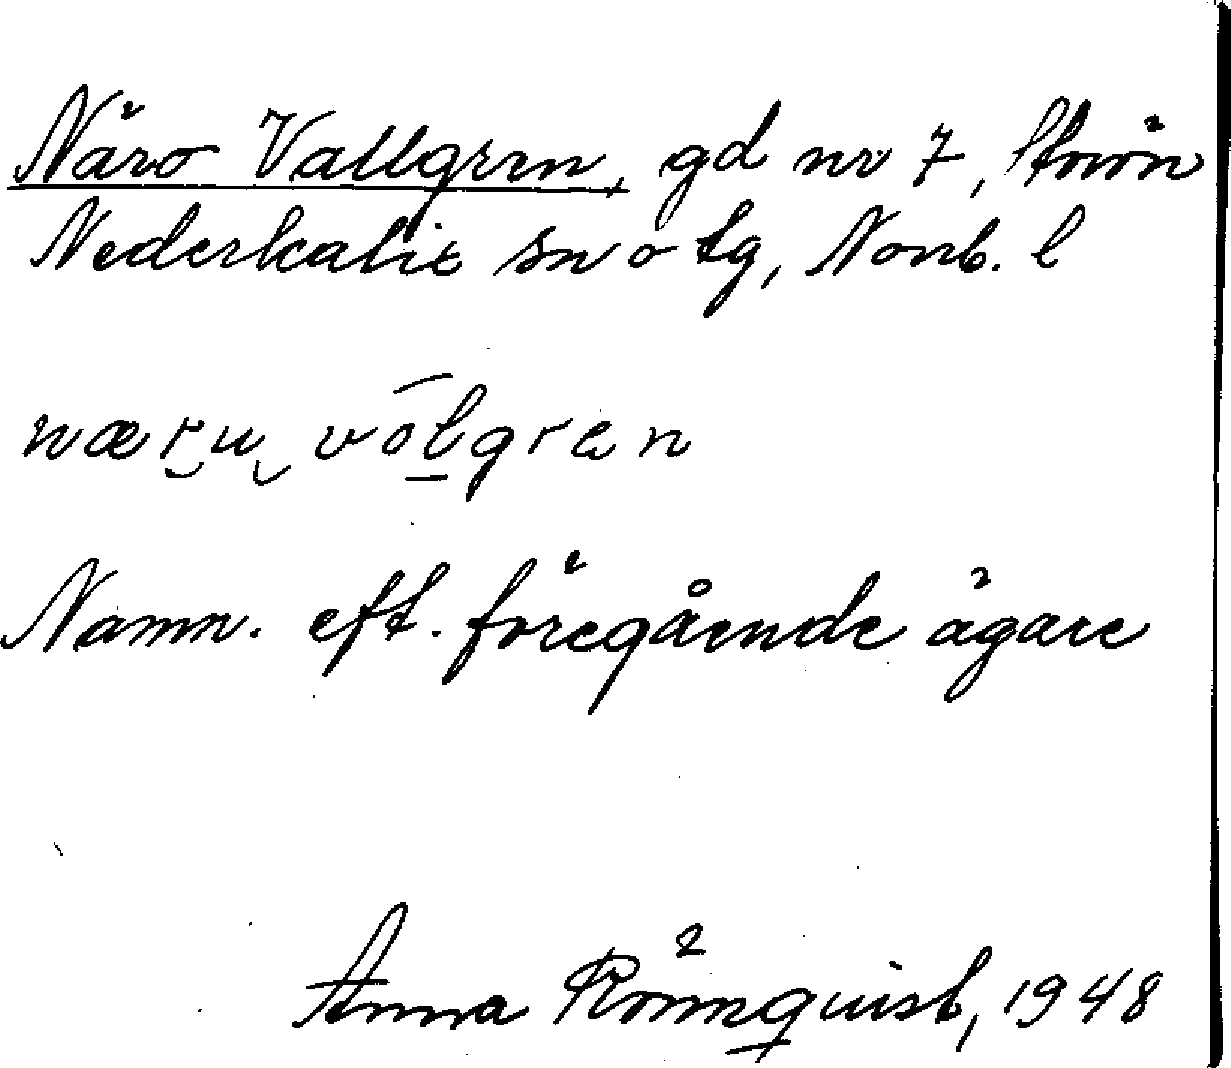 NärO Vallgren, gd nr 7, Storön
Nederkalix sn o tg, Norrb. l
næru vålgren
Namn. eft. föregående ägare
Anna Rönnquist, 1948